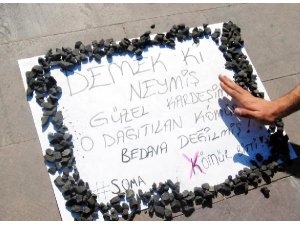 DEMEK Kİ
NEYMİŞ
GÜZEL KARDEŞİM
O DAĞITILAN KÖMÜR
BEDAVA DEĞİLMİŞ
#SOMA KÖMÜR